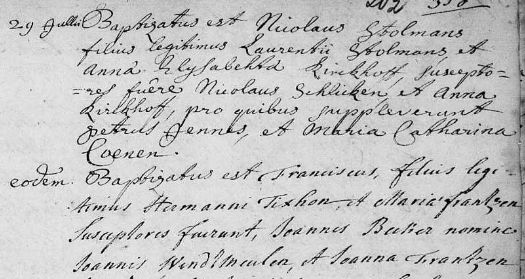 202 338
29 Julii Baptizatus est Nicolaus Stolmans
filius legitimus Laurentii Stolmans et
Anna Elysabehta Kirckhoff, suscepto-
=res fuêre Nicolaus Schlicken et Anna
Kirkhoff, pro quibus suppleverunt
petrus Jennes, et Maria Catharina
Coenen.
eodem. Baptizatus est Franciscus, filius legi-
timus Hermanni Tixhon, et Maria frantzen
Susceptores fuerunt, Joannes Becker nomine
Joannis et Joanna Frantzen